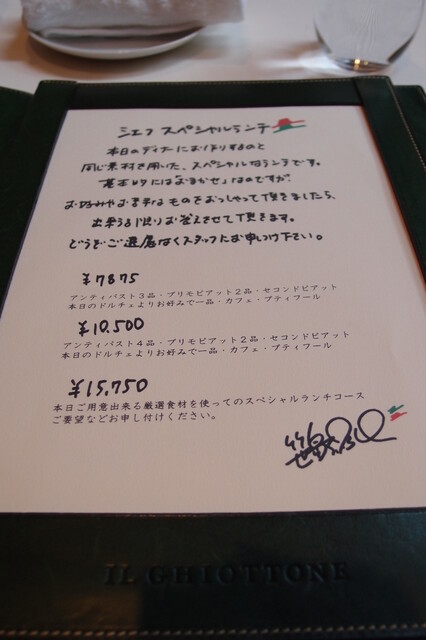 シェフ スペシャルランチ
本日のディナーにお出しするのと
同じ素材を用いた、スペシャルなランチです。
基本的には「おまかせ」なのですが、
お好みやお苦手なものをおっしゃって頂きましたら、
出来うる限りお答えさせて頂きます。
どうぞご遠慮なくスタッフにお申しつけ下さい。
¥7875
アンティパスト3品・プリモピアット2品・セコンドピアット
本日のドルチェよりお好みで一品・カフェ・プティフール
¥10.500
アンティパスト4品・プリモピアット2品・セコンドピアット
本日のドルチェよりお好みで一品・カフェ・プティフール
¥15,750
本日ご用意出来る厳選食材を使ってのスペシャルランチコース
ご要望などお申し付けください。
IL GHIOTTONE